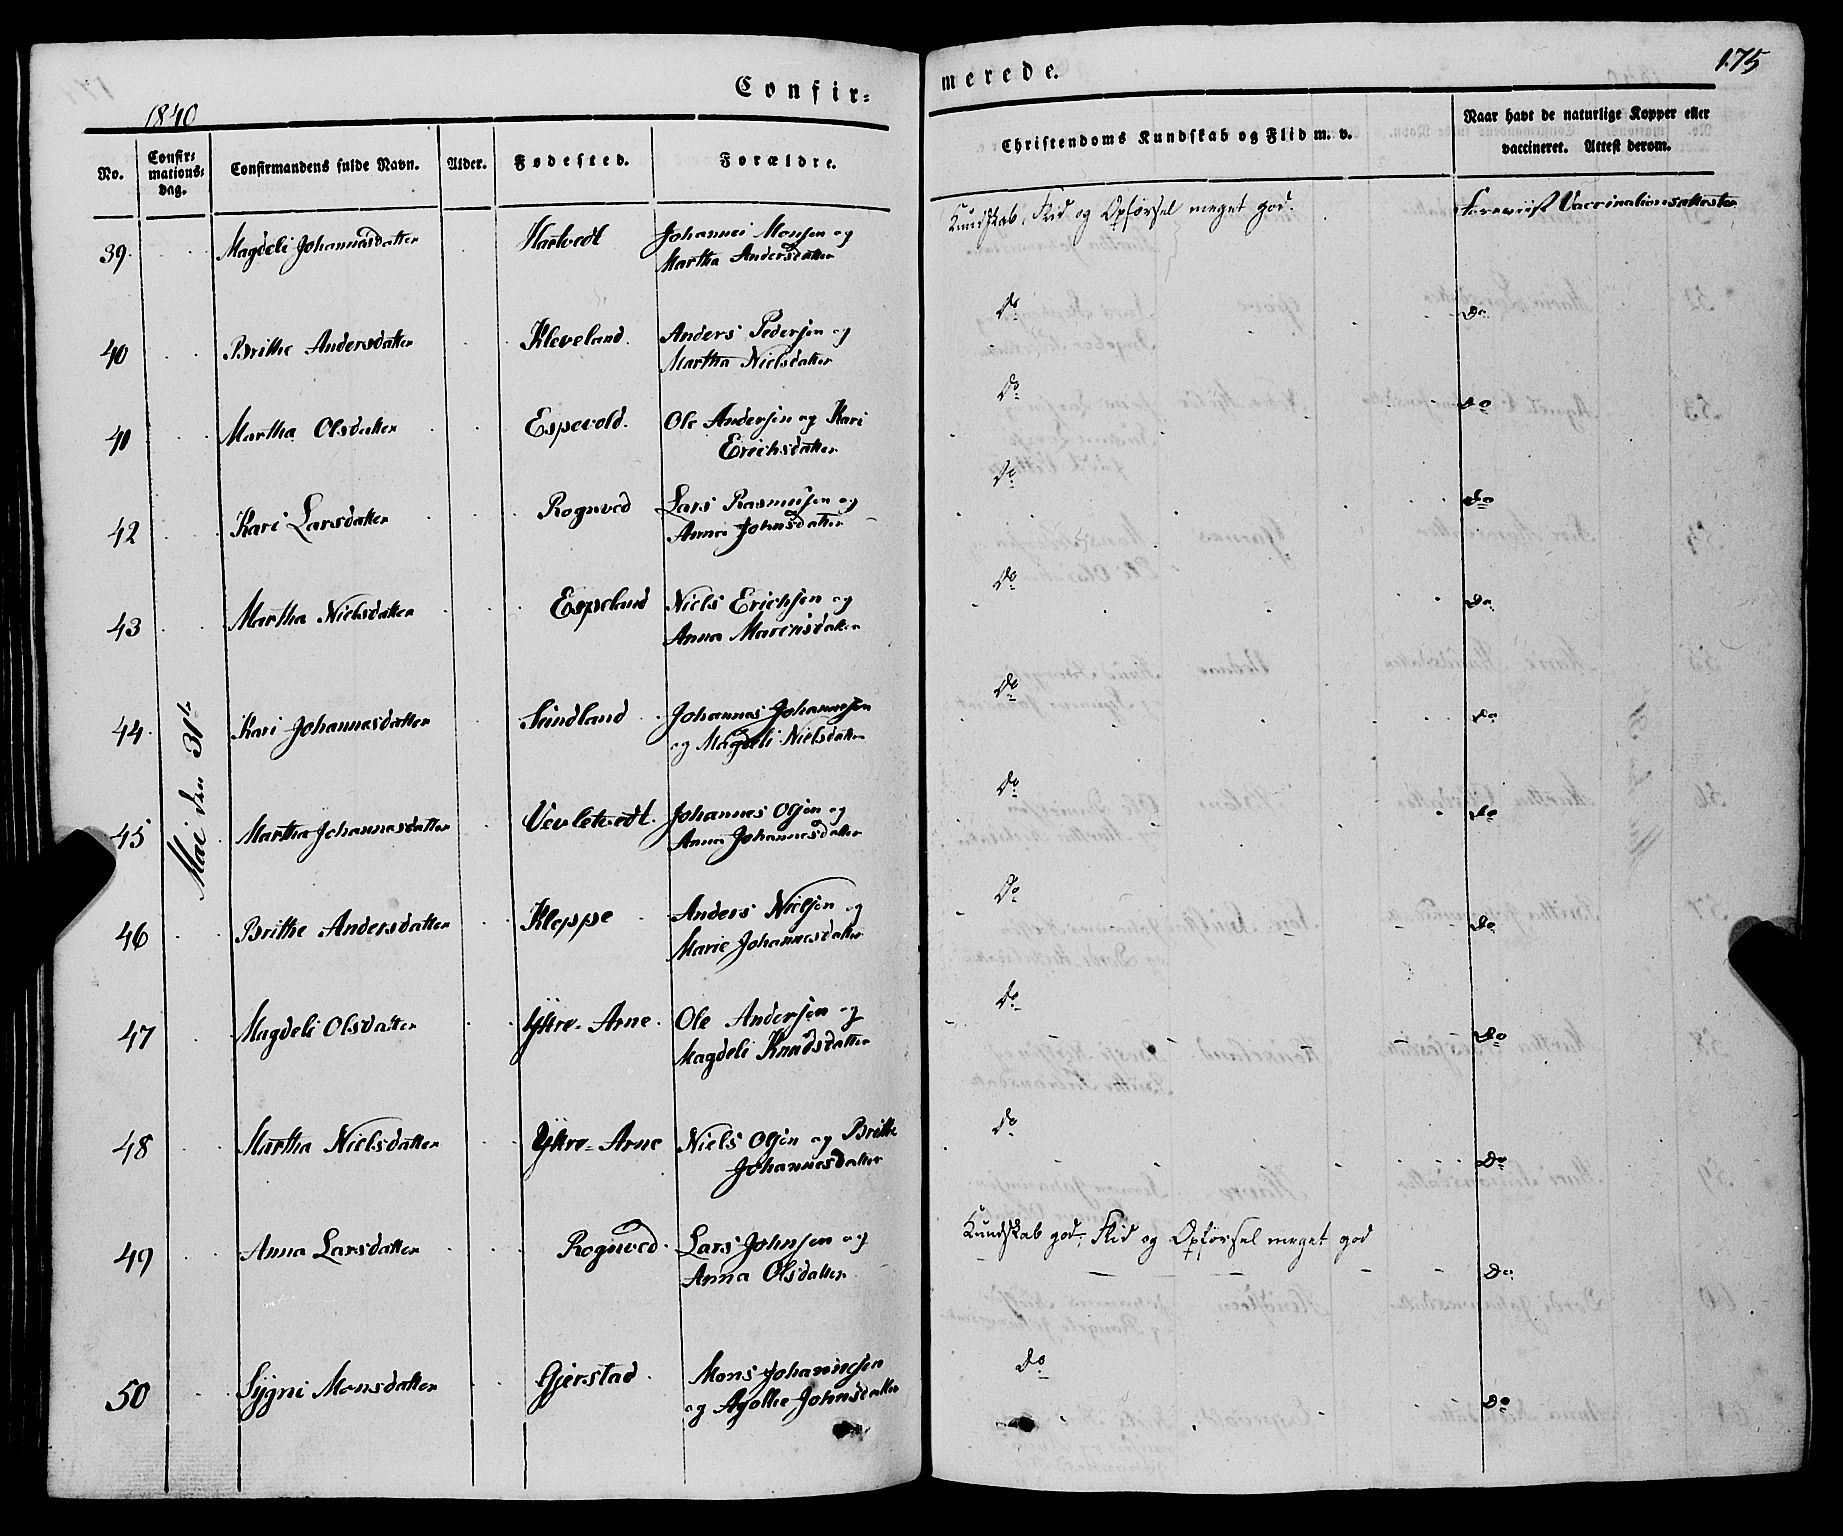 175
1840
Confir= merede.
No. Confir= mations= dag. Confirmandens fulde Navn. Alder. Fødested. Forældre. Christendoms Kundskab og Flid m. v. Naar havt de naturlige Kopper eller vaccineret. Attest derom.
Mai den 31te
39. Magdeli Johannesdatter Hartvedt Johannes Monsen og Kundskab, Flid og Opførsel meget god. Foreviist Vaccinationsattester
Martha Andersdatter
40 Brithe Andersdatter Kleveland. Anders Pedersen og Do Do
Martha Nielsdatter
41 Martha Olsdatter Espevold. Ole Andersen og Kari Do Do
Erichsdatter
42 Kari Larsdatter Rognved Lars Rasmussen og Do Do
Anna Johnsdatter
43 Martha Nielsdatter Espeland Niels Erichsen og Do Do
Anna Marensdatter
44. Kari Johannesdatter Seindland Johannes Johannesen Do Do
og Magdeli Nielsdatter
45 Martha Johannesdatter Vevletvedt. Johannes Olsen og Do Do
Anna Johannesdatter
46 Brithe Andersdatter Kleppe Anders Nielsen og Do Do
Marie Johannesdatter
47 Magdeli Olsdatter Ytre-Arne. Ole Andersen og Do Do
Magdeli Knudsdatter
48 Martha Nielsdatter Ytre-Arne Niels Olsen og Brithe Do Do
Johannesdatter
49 Anna Larsdatter Rognved. Lars Johnsen og Kundskab god, Flid og Opførsel meget god Do
Anna Olsdatter
50 Sygni Monsdatter Gjerstad. Mons Johannesen Do Do
og Johnsdatter